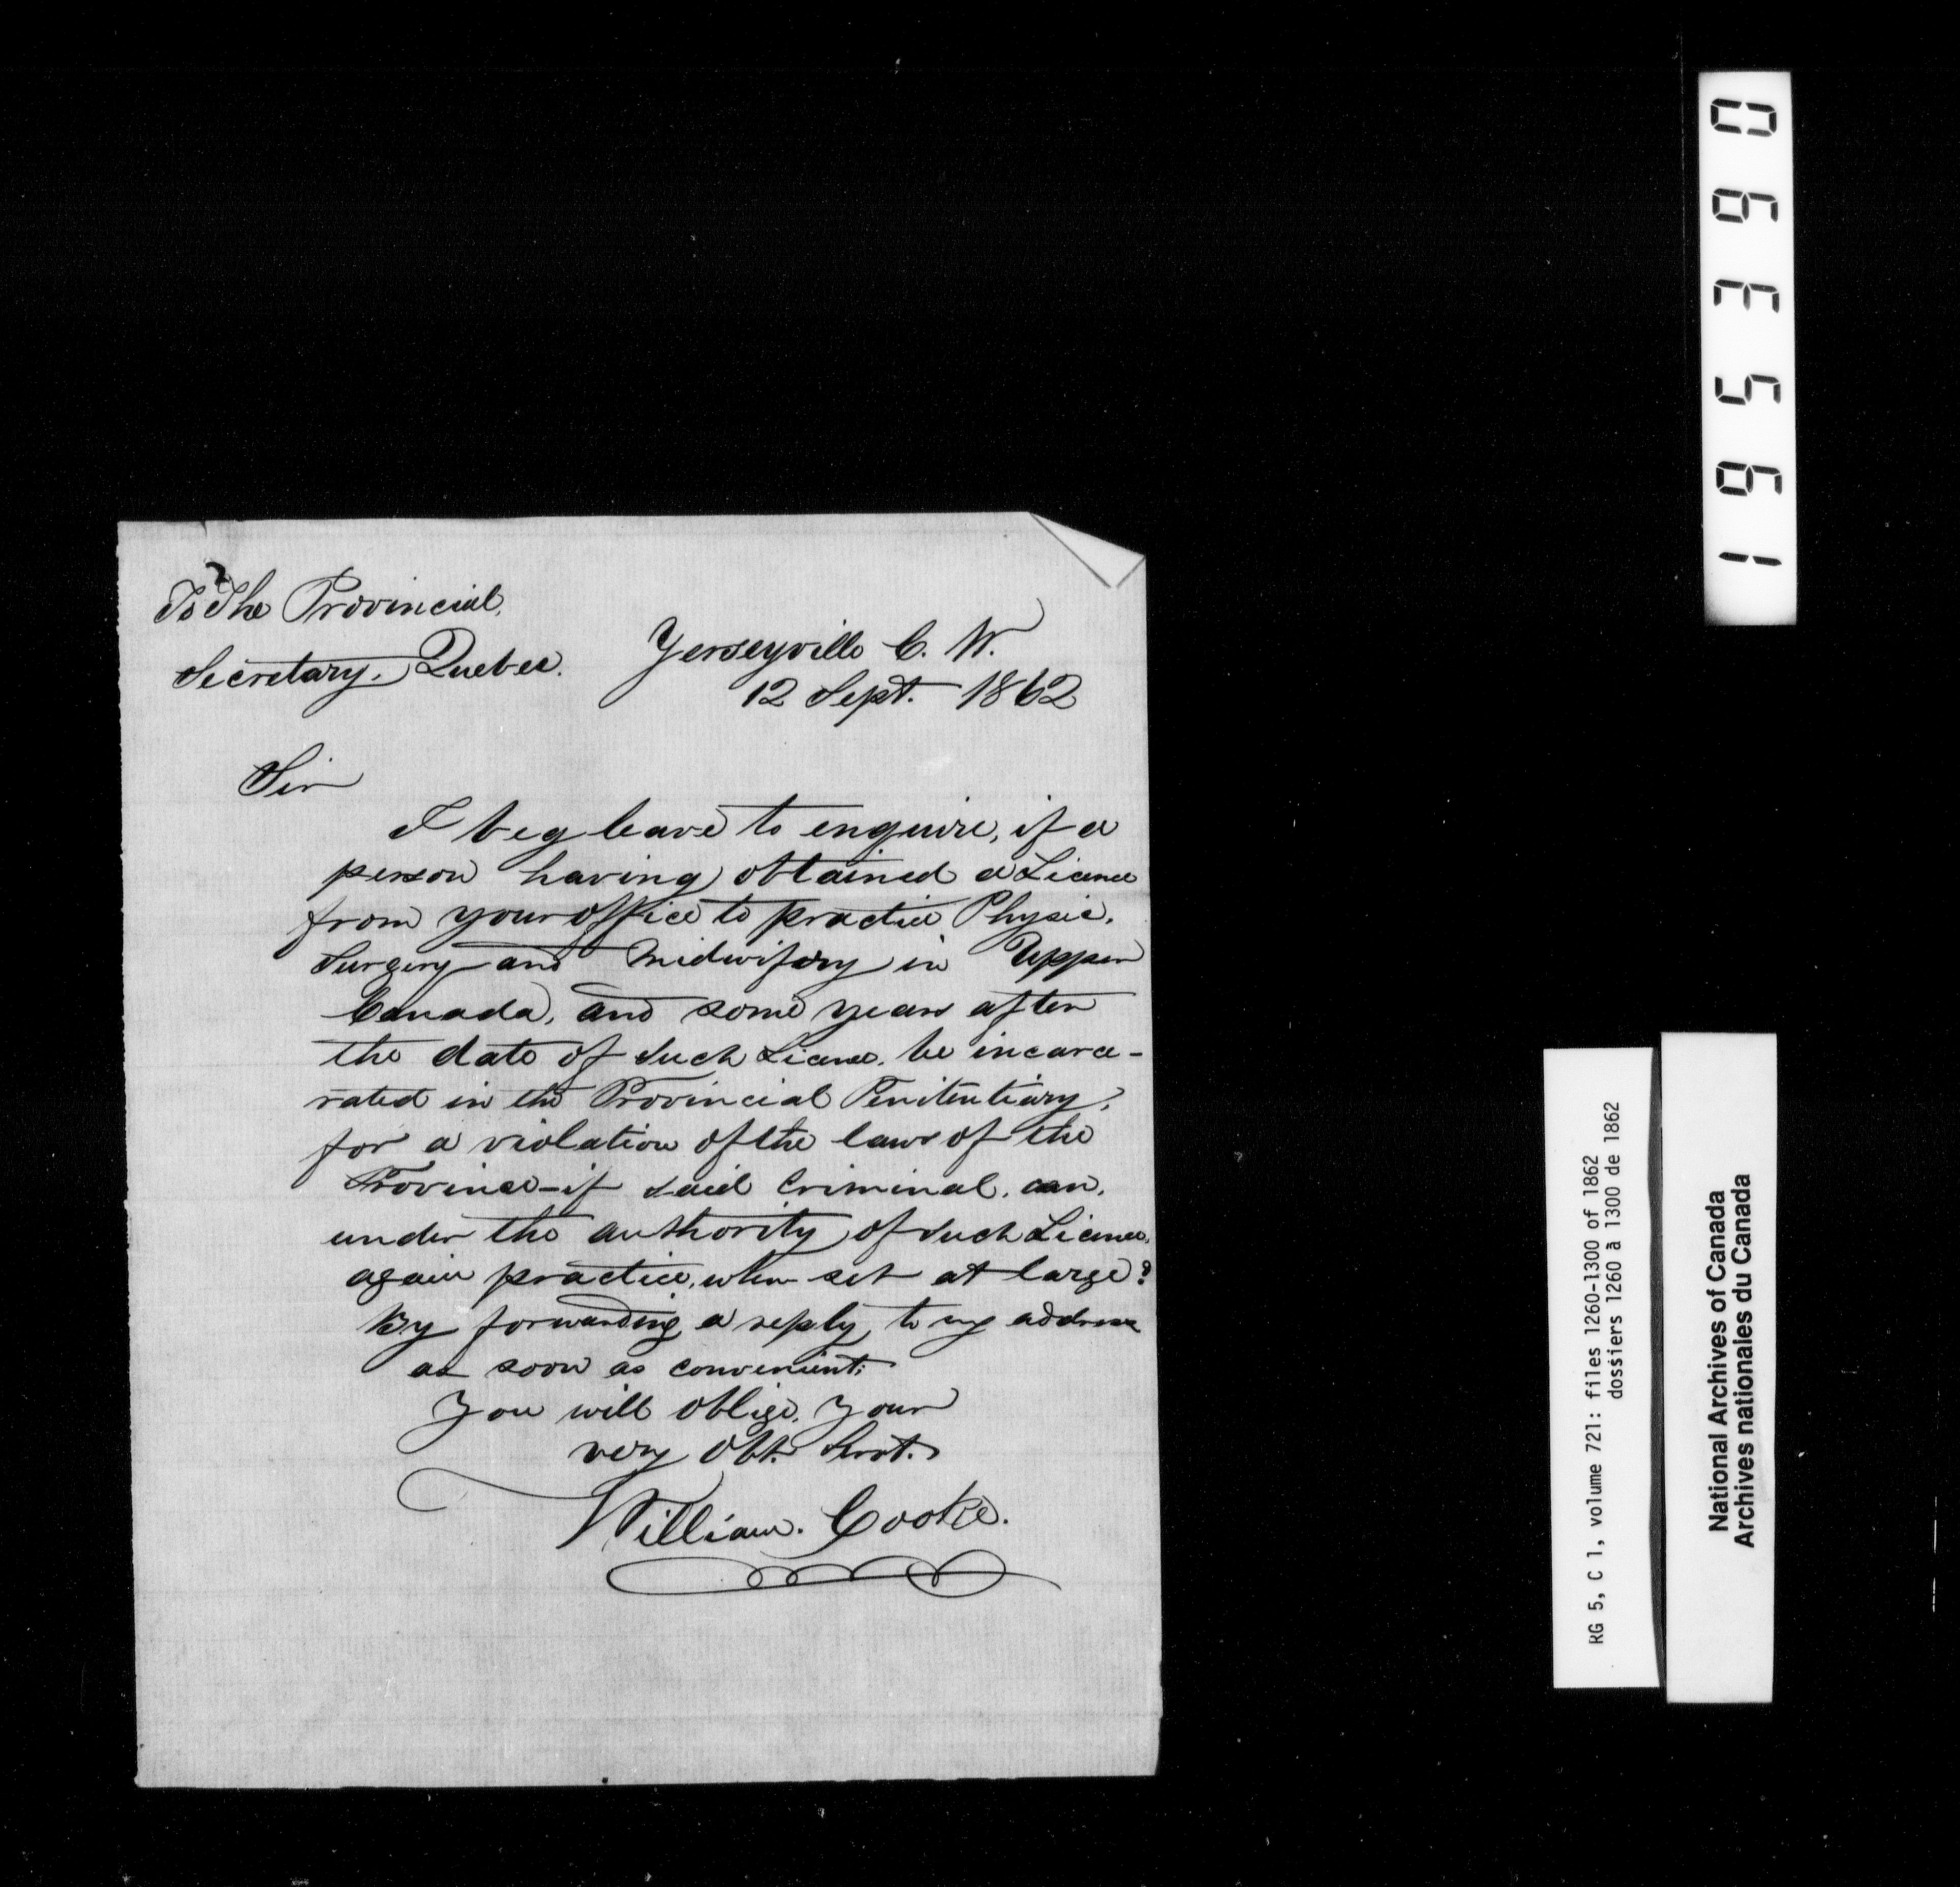 To The Provincial,
Secretary, Quebec.
Jerseyville C. W.
12 Sept. 1862
Sir
I beg leave to enquire, if a
person having obtained a Licence
from your office to practice Physic,
Surgery and Midwifery in Upper
Canada, and some years after
the date of such Licence, be incarce-
rated in the Provincial Penitentiary,
for a violation of the laws of the
Province - if said Criminal, can,
under the authority of such Licence,
again practice, when set at large?
By forwarding a reply, to my address
as soon as convenient;
You will oblige, Your
very Obt. Servt.
William. Cooke.
196360
RG 5, C 1, volume 721: files 1260-1300 of 1862
dossiers 1260 à 1300 de 1862
National Archives of Canada
Archives nationales du Canada